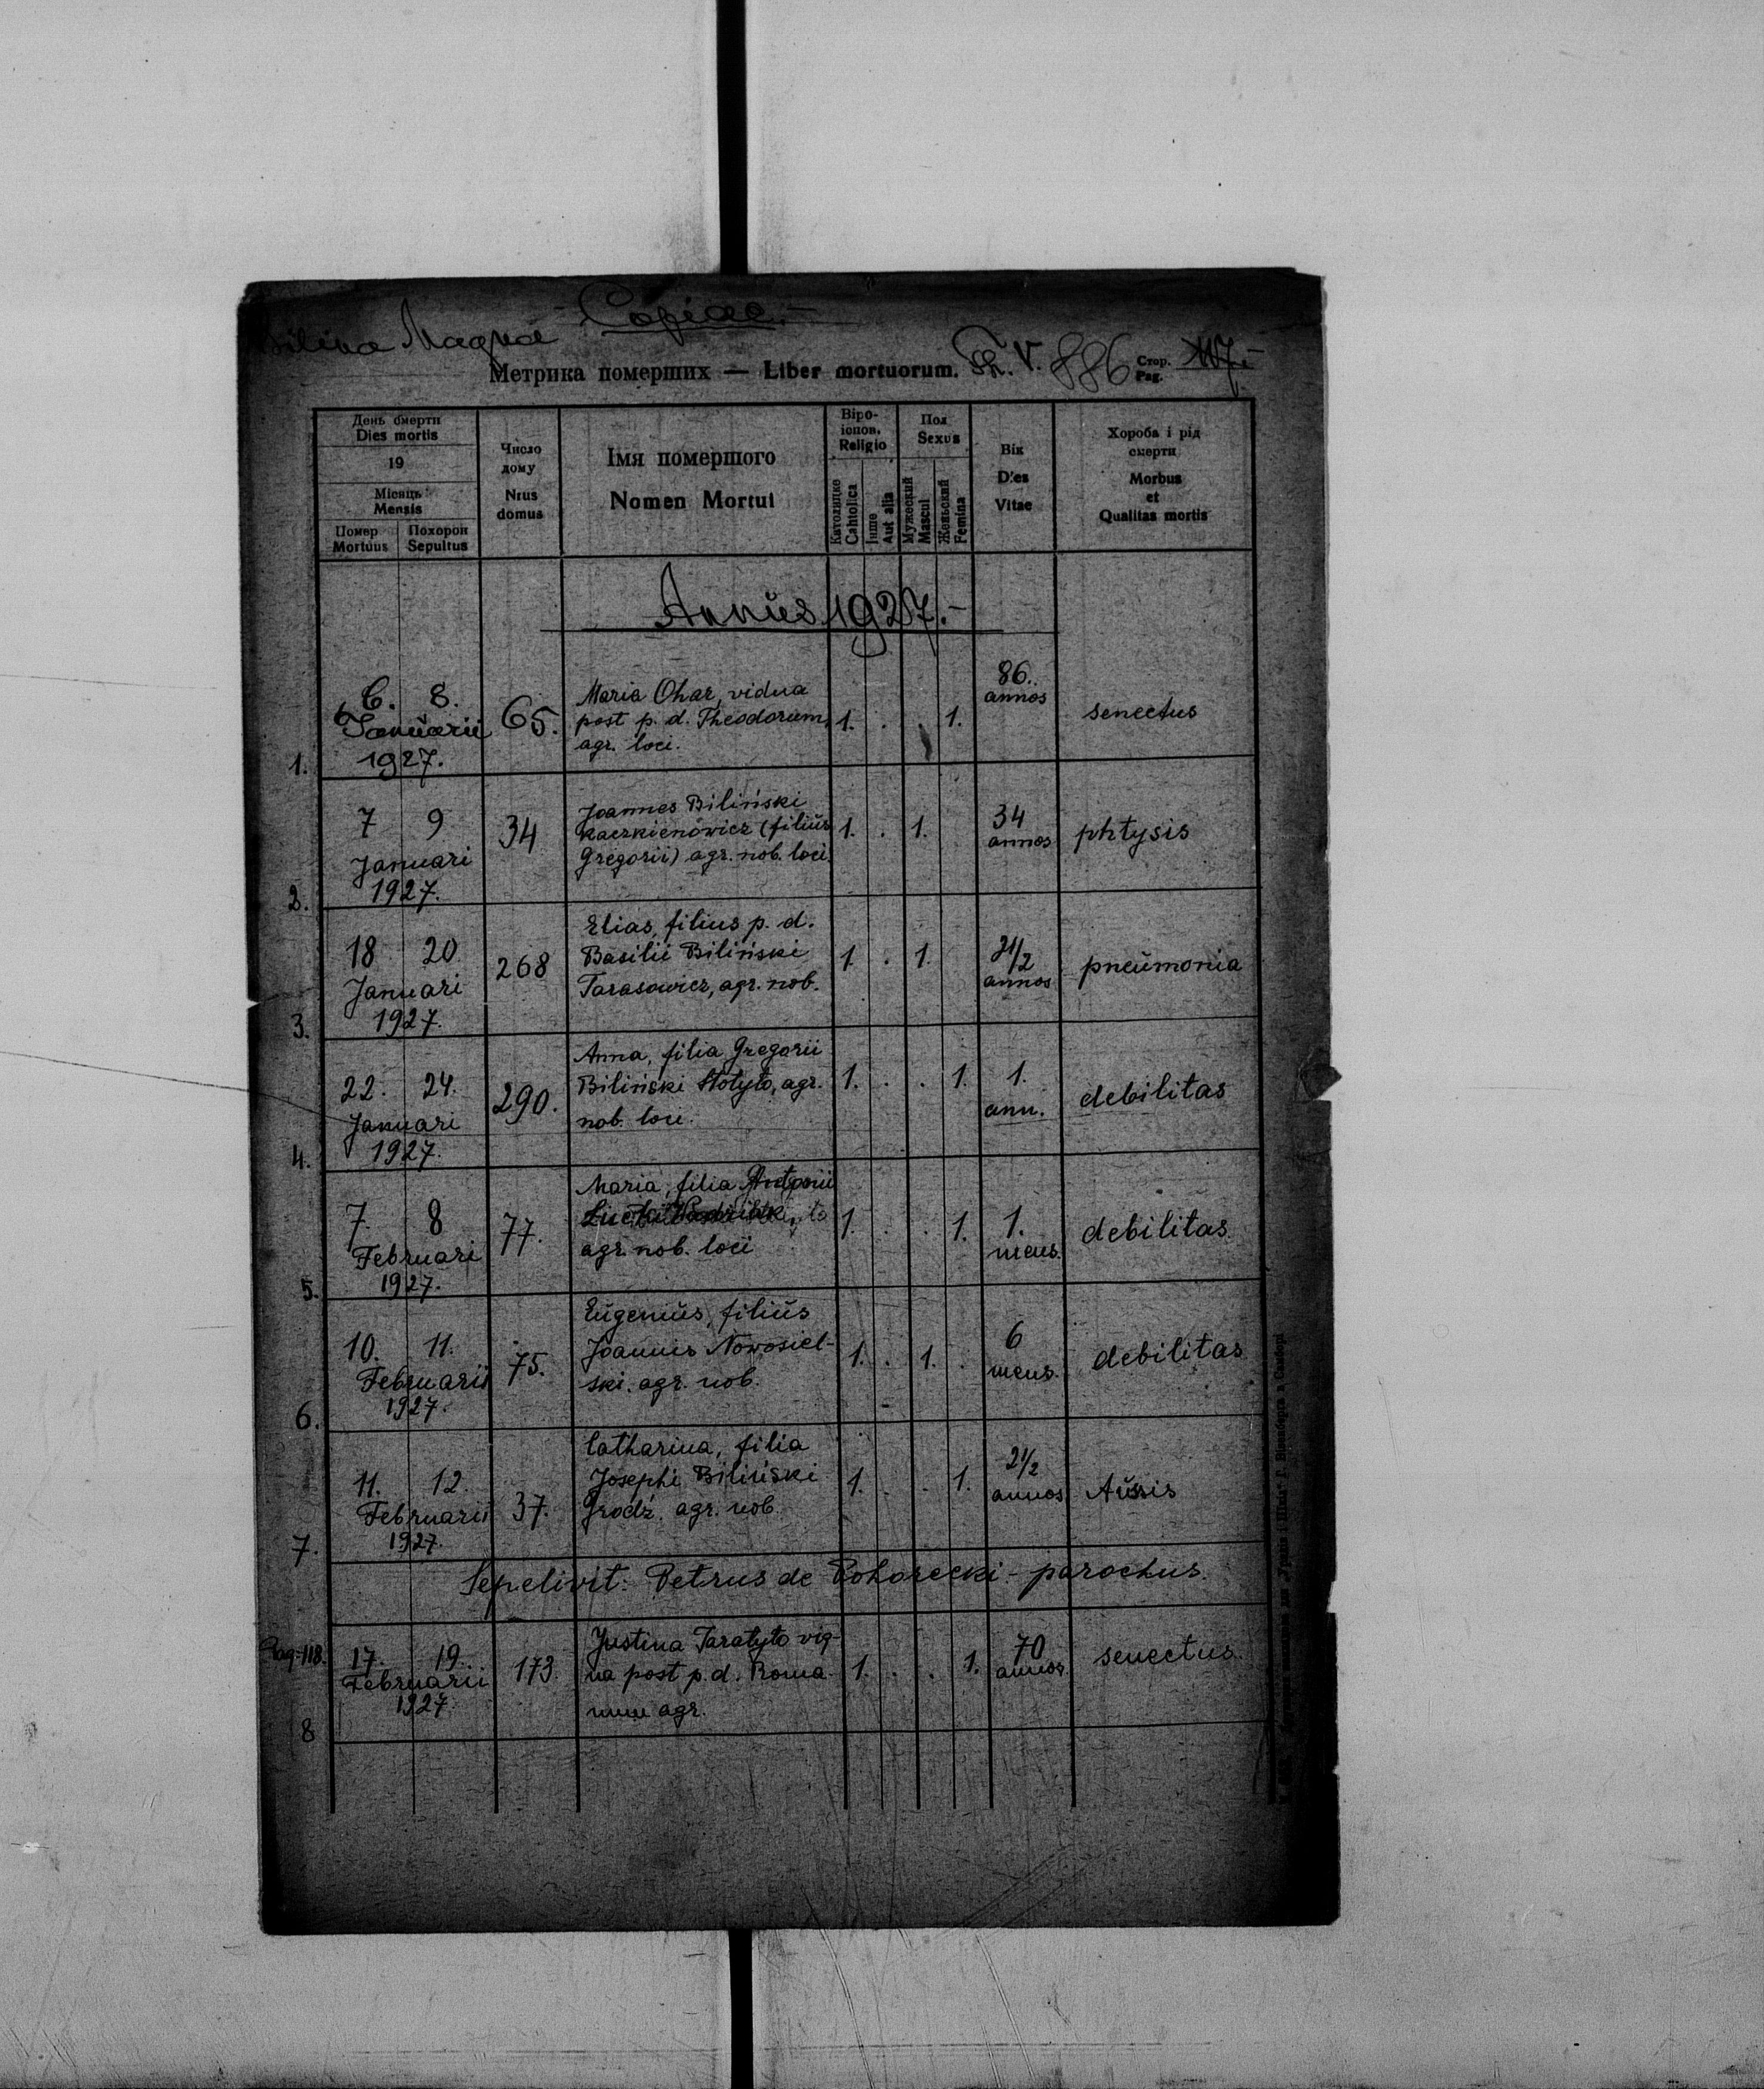 - Copiae. -
Bilina Magna
Метрика померших — Liber mortuorum. Th. V. 886 Стор. Pag. 117.-
День смерти
Dies mortis
19
Місяць
Mensis
Помер
Mortuus
Похорон
Sepultus
Число
дому
Nrus
domus
Імя помершого
Nomen Mortui
Віро-
ісnов.
Religio
Католицке
Cahtolica
Інше
Aut alia
Пол
Sexus
Мужеский
Masculi
Женьский
Femina
Вік
D'es
Vitae
Хороба і рід
смерти
Morbus
et
Qualitas mortis
Annus 1927.-
1. 6. 8. Januarii 1927. 65. Maria Ohar, vidua
post p. d. Theodorum,
agr. loci. 1. . . 1. 86. annos senectus
2. 7 9 Januari 1927. 34 Joannes Biliński
Kaczkienowicz (filius
Gregorii) agr. nob. loci. 1. . 1. 34 annos phtysis
3. 18 20. Januari 1927. 268 Elias, filius p. d.
Basilii Biliński
Tarasowicz, agr. nob. 1. . 1. 2 1/2 annos pneumonia
4. 22. 24. Januari 1927. 290. Anna, filia Gregorii
Biliński agr.
nob. loci. 1. . . 1. 1. ann. debilitas
5. 7. 8 Februari 1927. 77. Maria, filia Antonii
agr. nob. loci 1. . . 1. 1. mens. debilitas
6. 10. 11. Februarii 1927. 75. Eugenius, filius
Joannis Nowosiel-
ski. agr. nob. 1. . 1. . 6 mens. debilitas
7. 11. 12. Februarii 1927. 37. Catharina, filia
Josephi Biliński
Grodź. agr. nob. 1. . . 1. 2 1/2 annos
Sepelivit: Petrus de Pohorecki - parochus.
Pag-118. 8 17. 19. Februarii 1927. 173. Justina Taratyto vig-
na post p. d. Roma-
num agr. 1. . . 1. 70 annos. senectus.